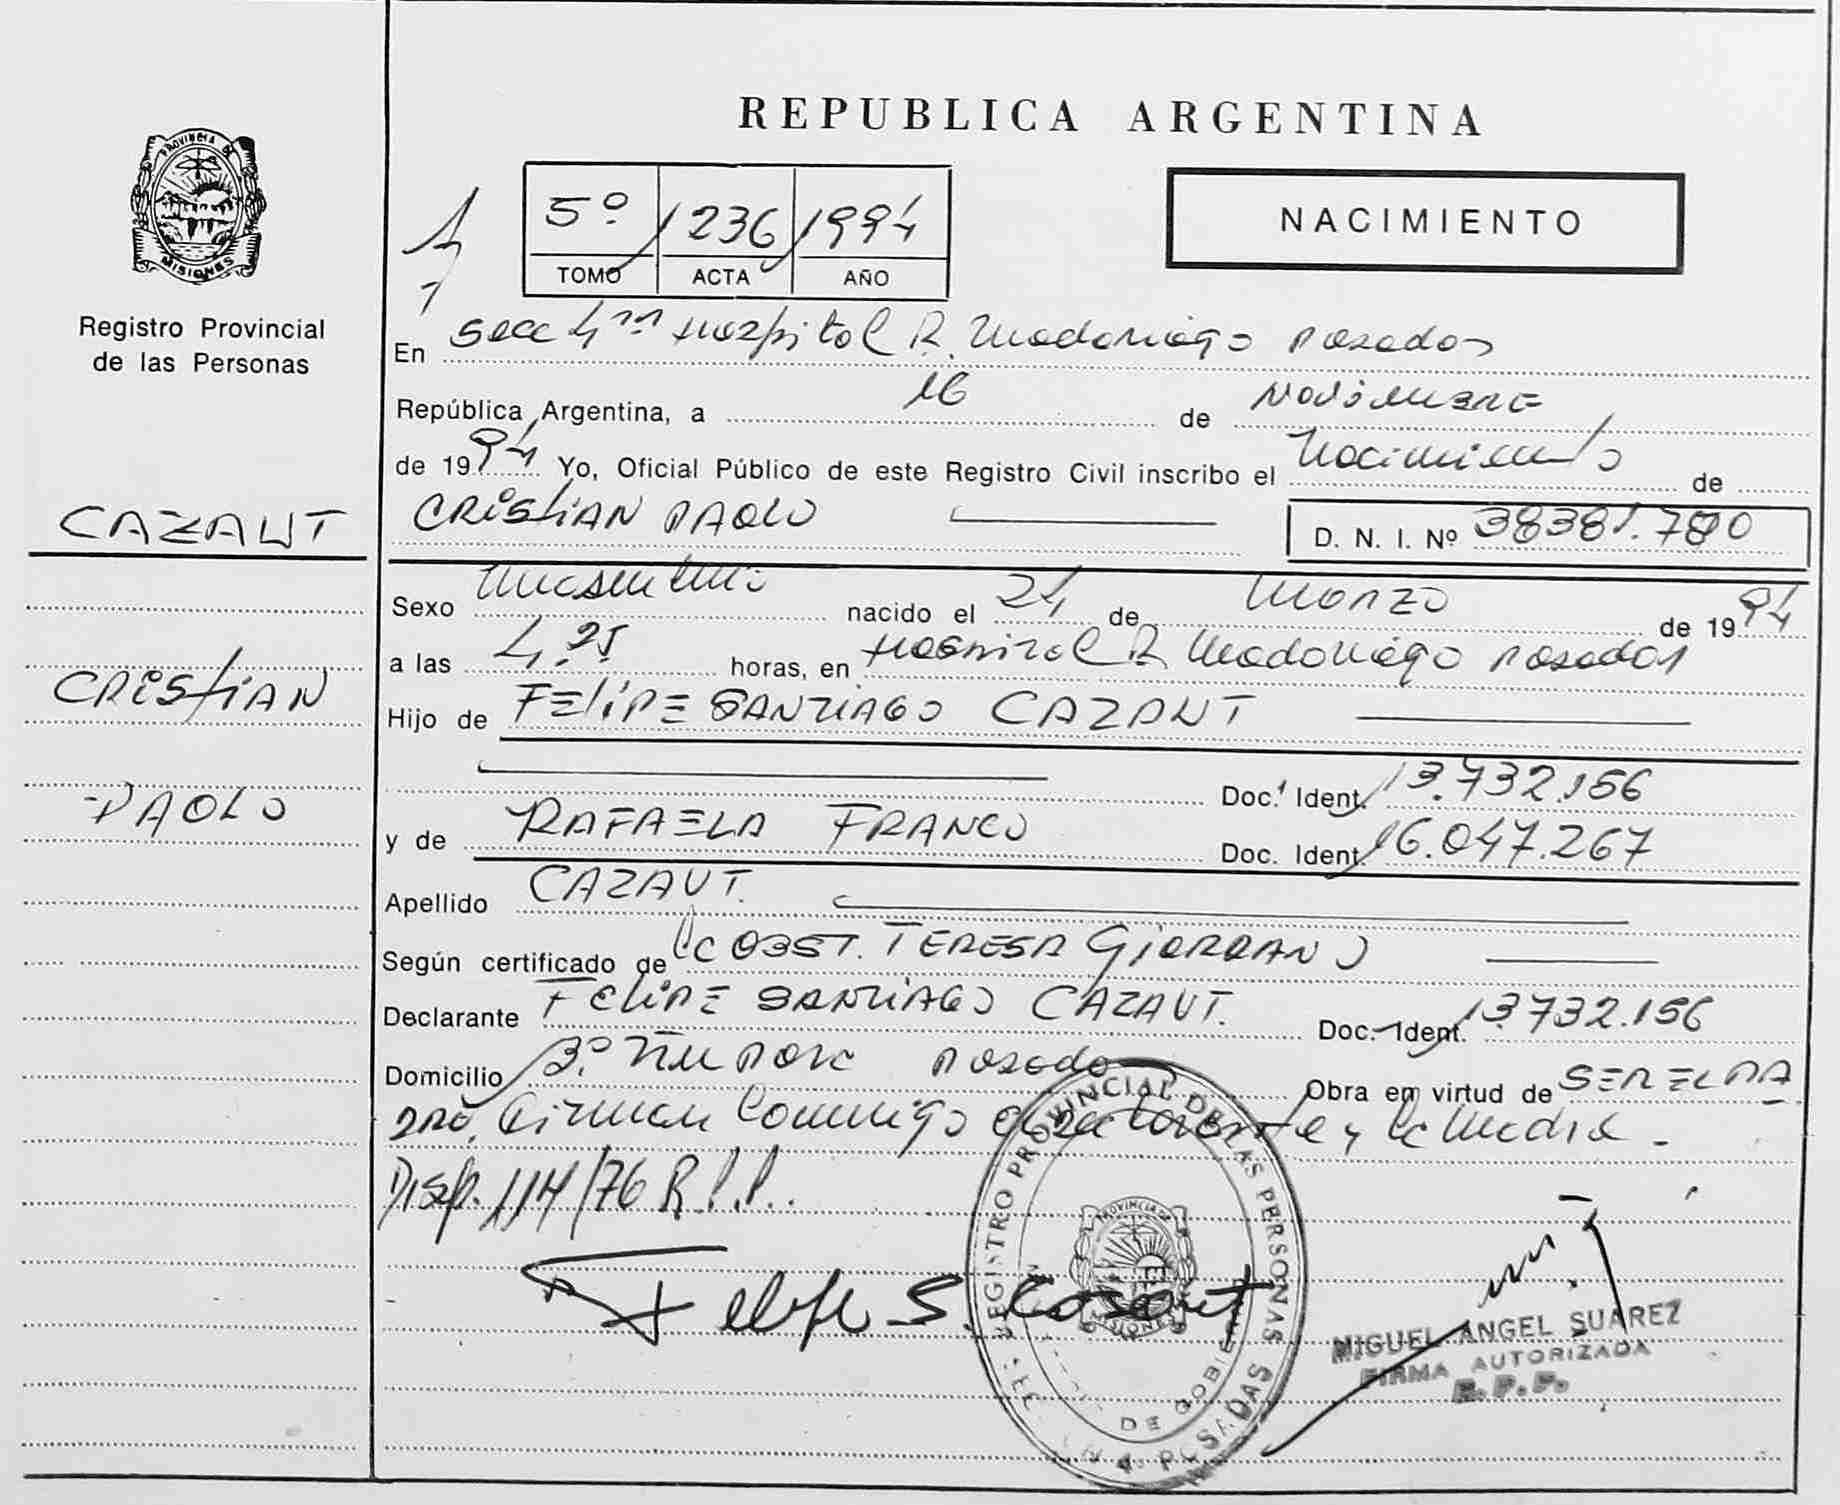 REPUBLICA ARGENTINA
PROVINCIA DE
MISIONES
Registro Provincial
de las Personas
5º 1236 1994
TOMO ACTA AÑO
NACIMIENTO
En Secc 4ta Hospital R. Madariaga Posadas
República Argentina, a 16 de Noviembre
de 1994 Yo, Oficial Público de este Registro Civil inscribo el Nacimiento de
CAZAUT
CRISTIAN PAOLO D. N. I. Nº
Sexo Masculino nacido el 24 de Marzo de 1994
a las 4,25 horas, en Hospital R. Madariaga Posadas
CRISTIAN
Hijo de FELIPE SANTIAGO CAZAUT
Doc. Ident. 13.732.156
PAOLO
y de RAFAELA FRANCO Doc. Ident. 16.047.267
Apellido CAZAUT.
Según certificado de OBST. TERESA GIORDANO
Declarante FELIPE SANTIAGO CAZAUT. Doc. Ident. 13.732.156
Domicilio Bº Ñu Porá Posadas Obra en virtud de SER EL PA
DRE. Firman conmigo el declarante y la madre.
Disp. 114/76 R.P.P.
Felipe S. Cazaut
REGISTRO PROVINCIAL DE LAS PERSONAS
PROVINCIA DE
MISIONES
DE GOBIERNO
POSADAS
MIGUEL ANGEL SUAREZ
FIRMA AUTORIZADA
R. P. P.